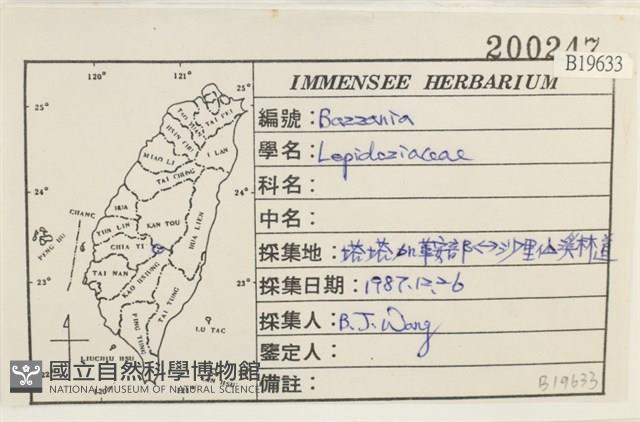 200247
B19633
IMMENSEE HERBARIUM
編號：Bazzania
學名：Lepidoziaceae
科名：
中名：
採集地：塔塔加鞍部<->沙里仙溪林道
採集日期：1987.12.26
採集人：B.J.Wang
鑒定人：
備註：
B19633
120° 121°
25° 25°
24° 24°
23° 23°
120° 121°
TAI PEI
I LAN
MIAO LI
TAI CHUNG
CHANG
HUA
NAN TOU
HUA LIEN
YUN LIN
PENG HU
CHIA YI
TAI NAN
KAO HSIUNG
TAI TUNG
PING TUNG
LIUCHIU HSU
LU TAO
國立自然科學博物館
NATIONAL MUSEUM OF NATURAL SCIENCE